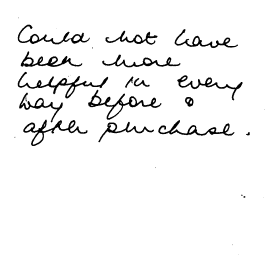 Could not have
been more
helpful in every
way before &
after purchase.